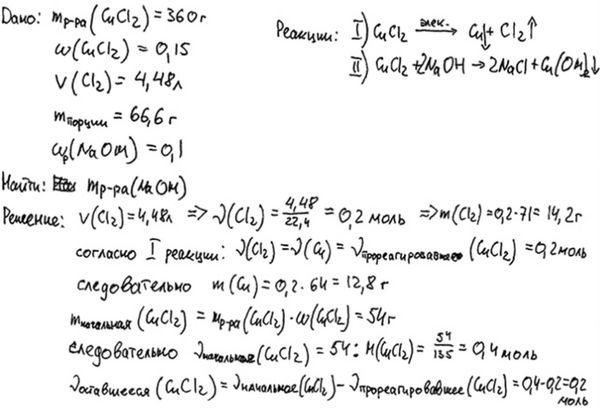 Дано: mр-ра(CuCl2) = 360г
ω(CuCl2) = 0,15
V(Cl2) = 4,48л
mпорции = 66,6г
ωр(NaOH) = 0,1
Реакции: I) CuCl2 —элек.→ Cu↓ + Cl2↑
II) CuCl2+2NaOH → 2NaCl + Cu(OH)2↓
Найти: mр-ра(NaOH)
Решение: V(Cl2)=4,48л => ν(Cl2) = 4,48/22,4 = 0,2 моль => m(Cl2)=0,2·71=14,2г
согласно I реакции: ν(Cl2)=ν(Cu)=νпрореагировавшее(CuCl2)=0,2моль
следовательно m(Cu)=0,2·64=12,8г
mначальная(CuCl2)=mр-ра(CuCl2)·ω(CuCl2)=54г
следовательно νначальная(CuCl2)=54:M(CuCl2)= 54/135 =0,4моль
νоставшееся(CuCl2)=νначальное(CuCl2)-νпрореагировавшее(CuCl2)=0,4-0,2=0,2
моль